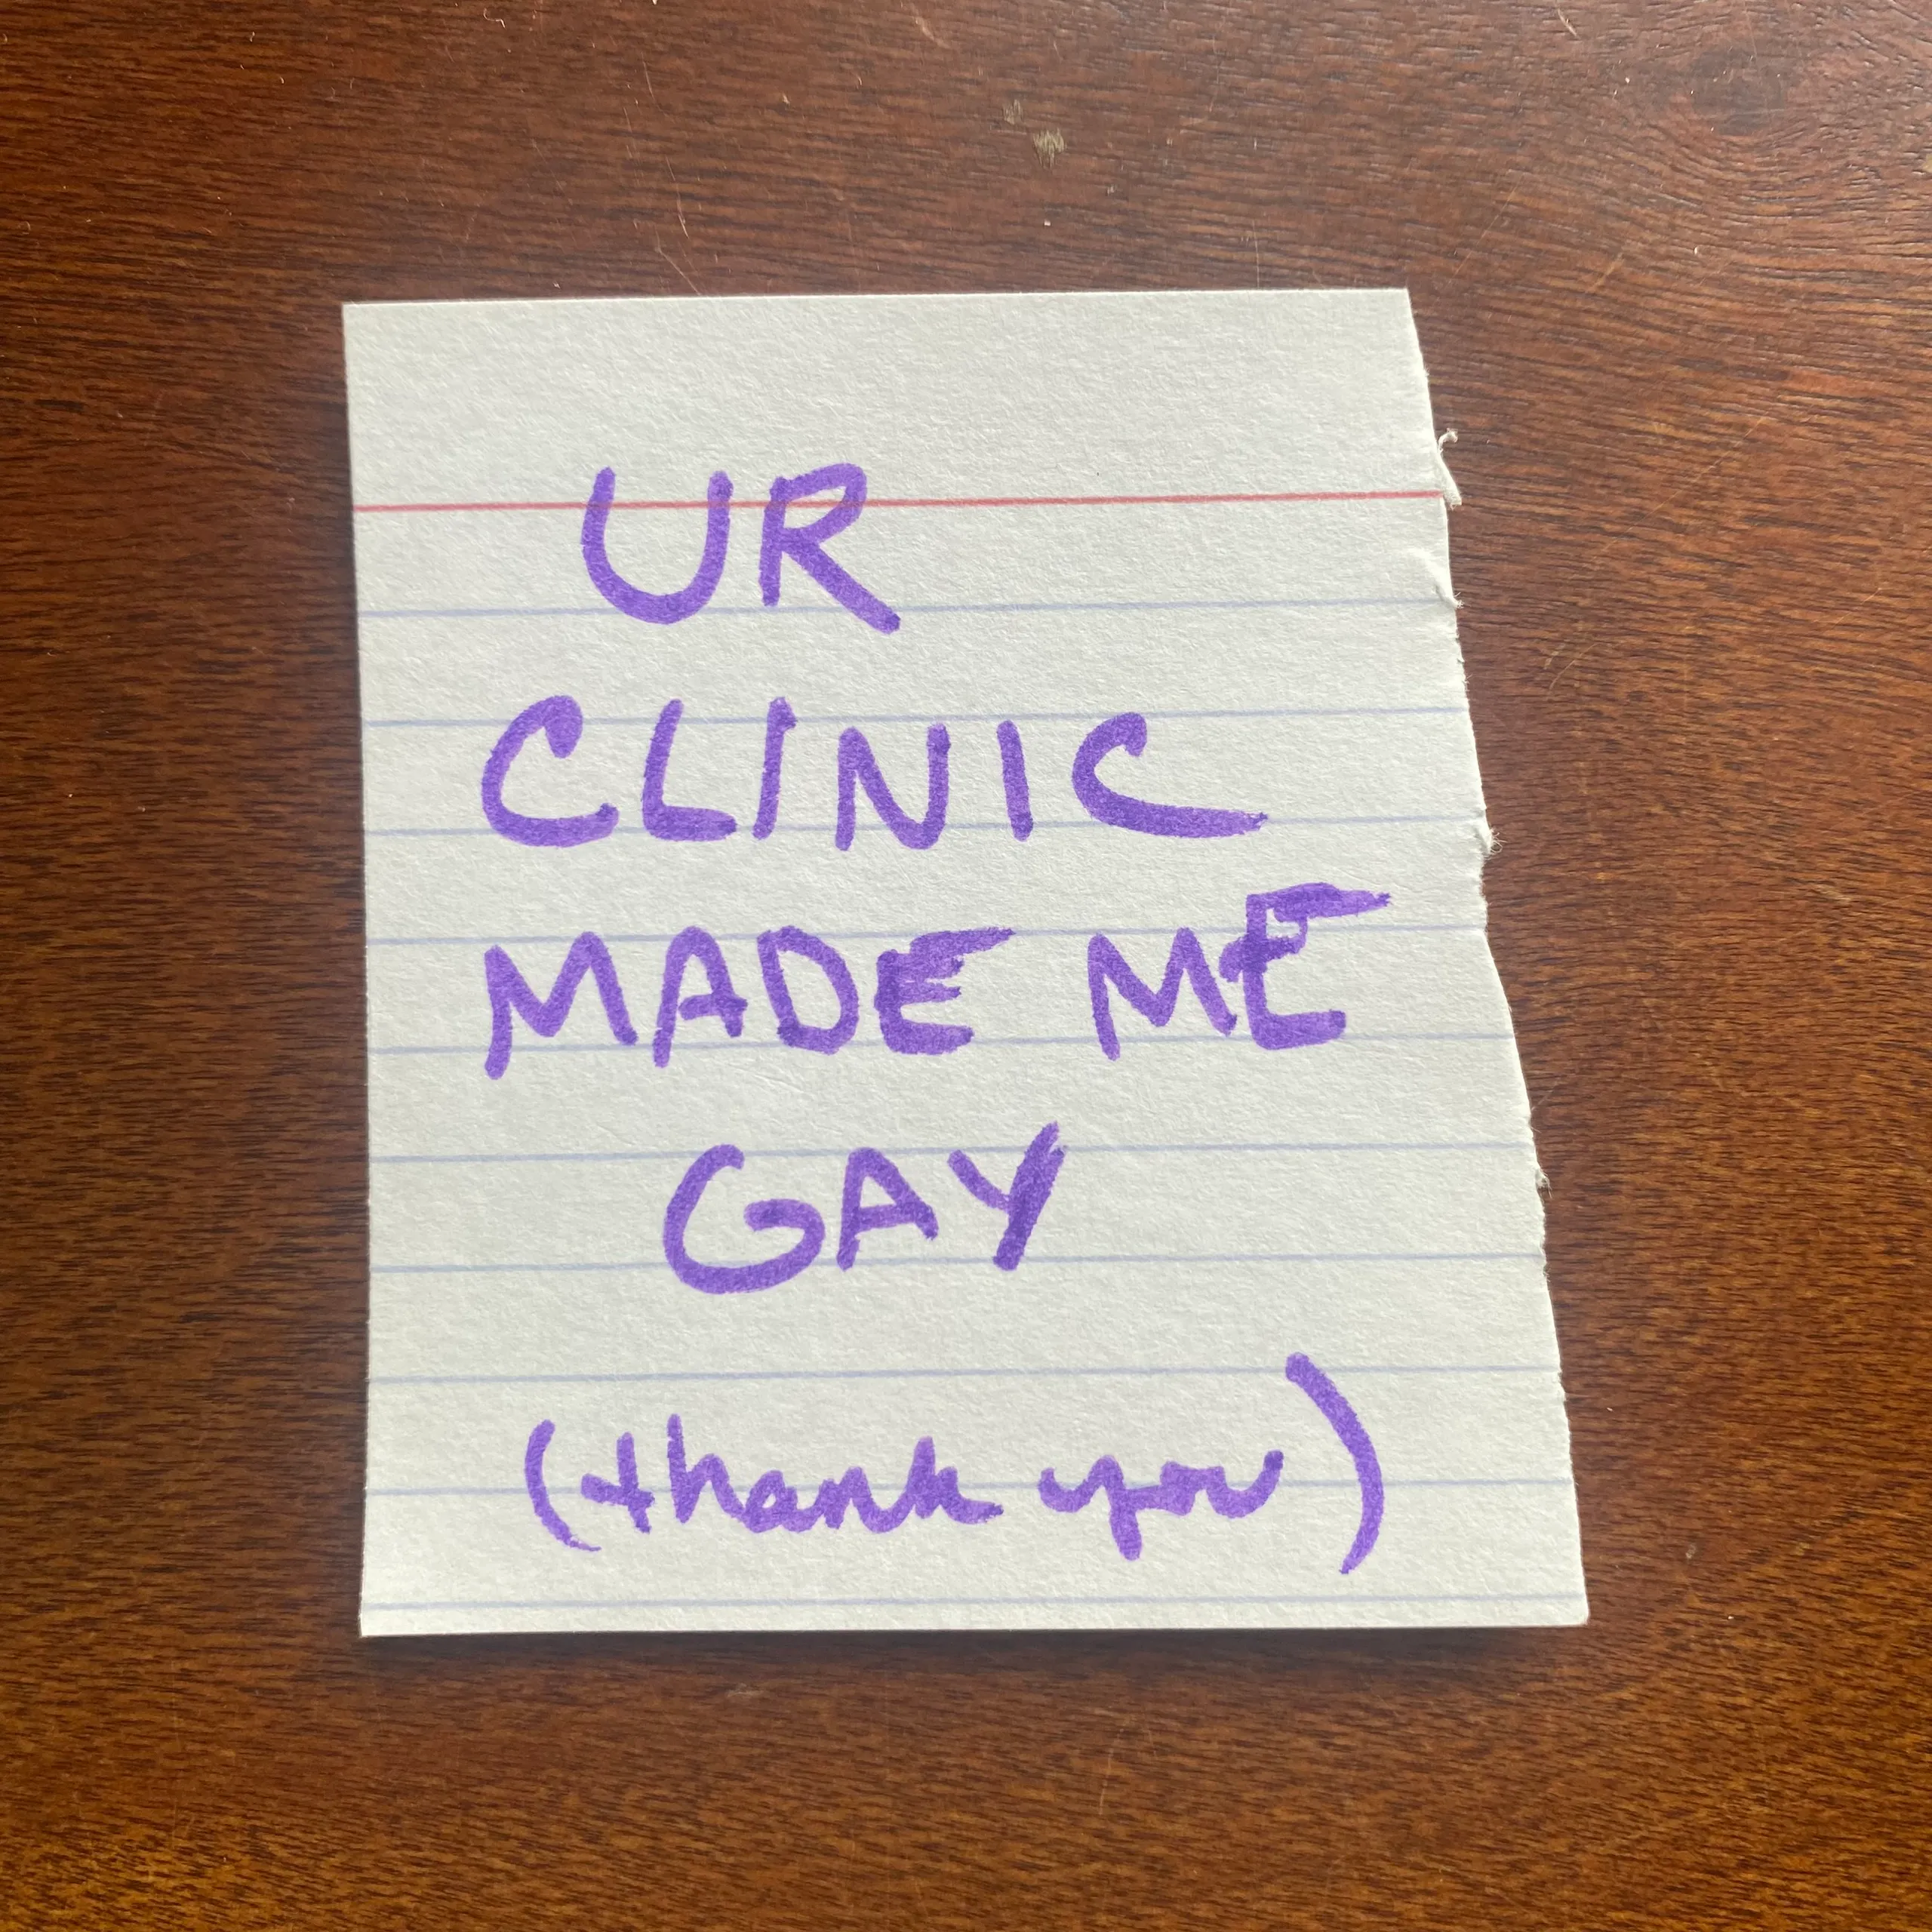 UR
CLINIC
MADE ME
GAY
(thank you)